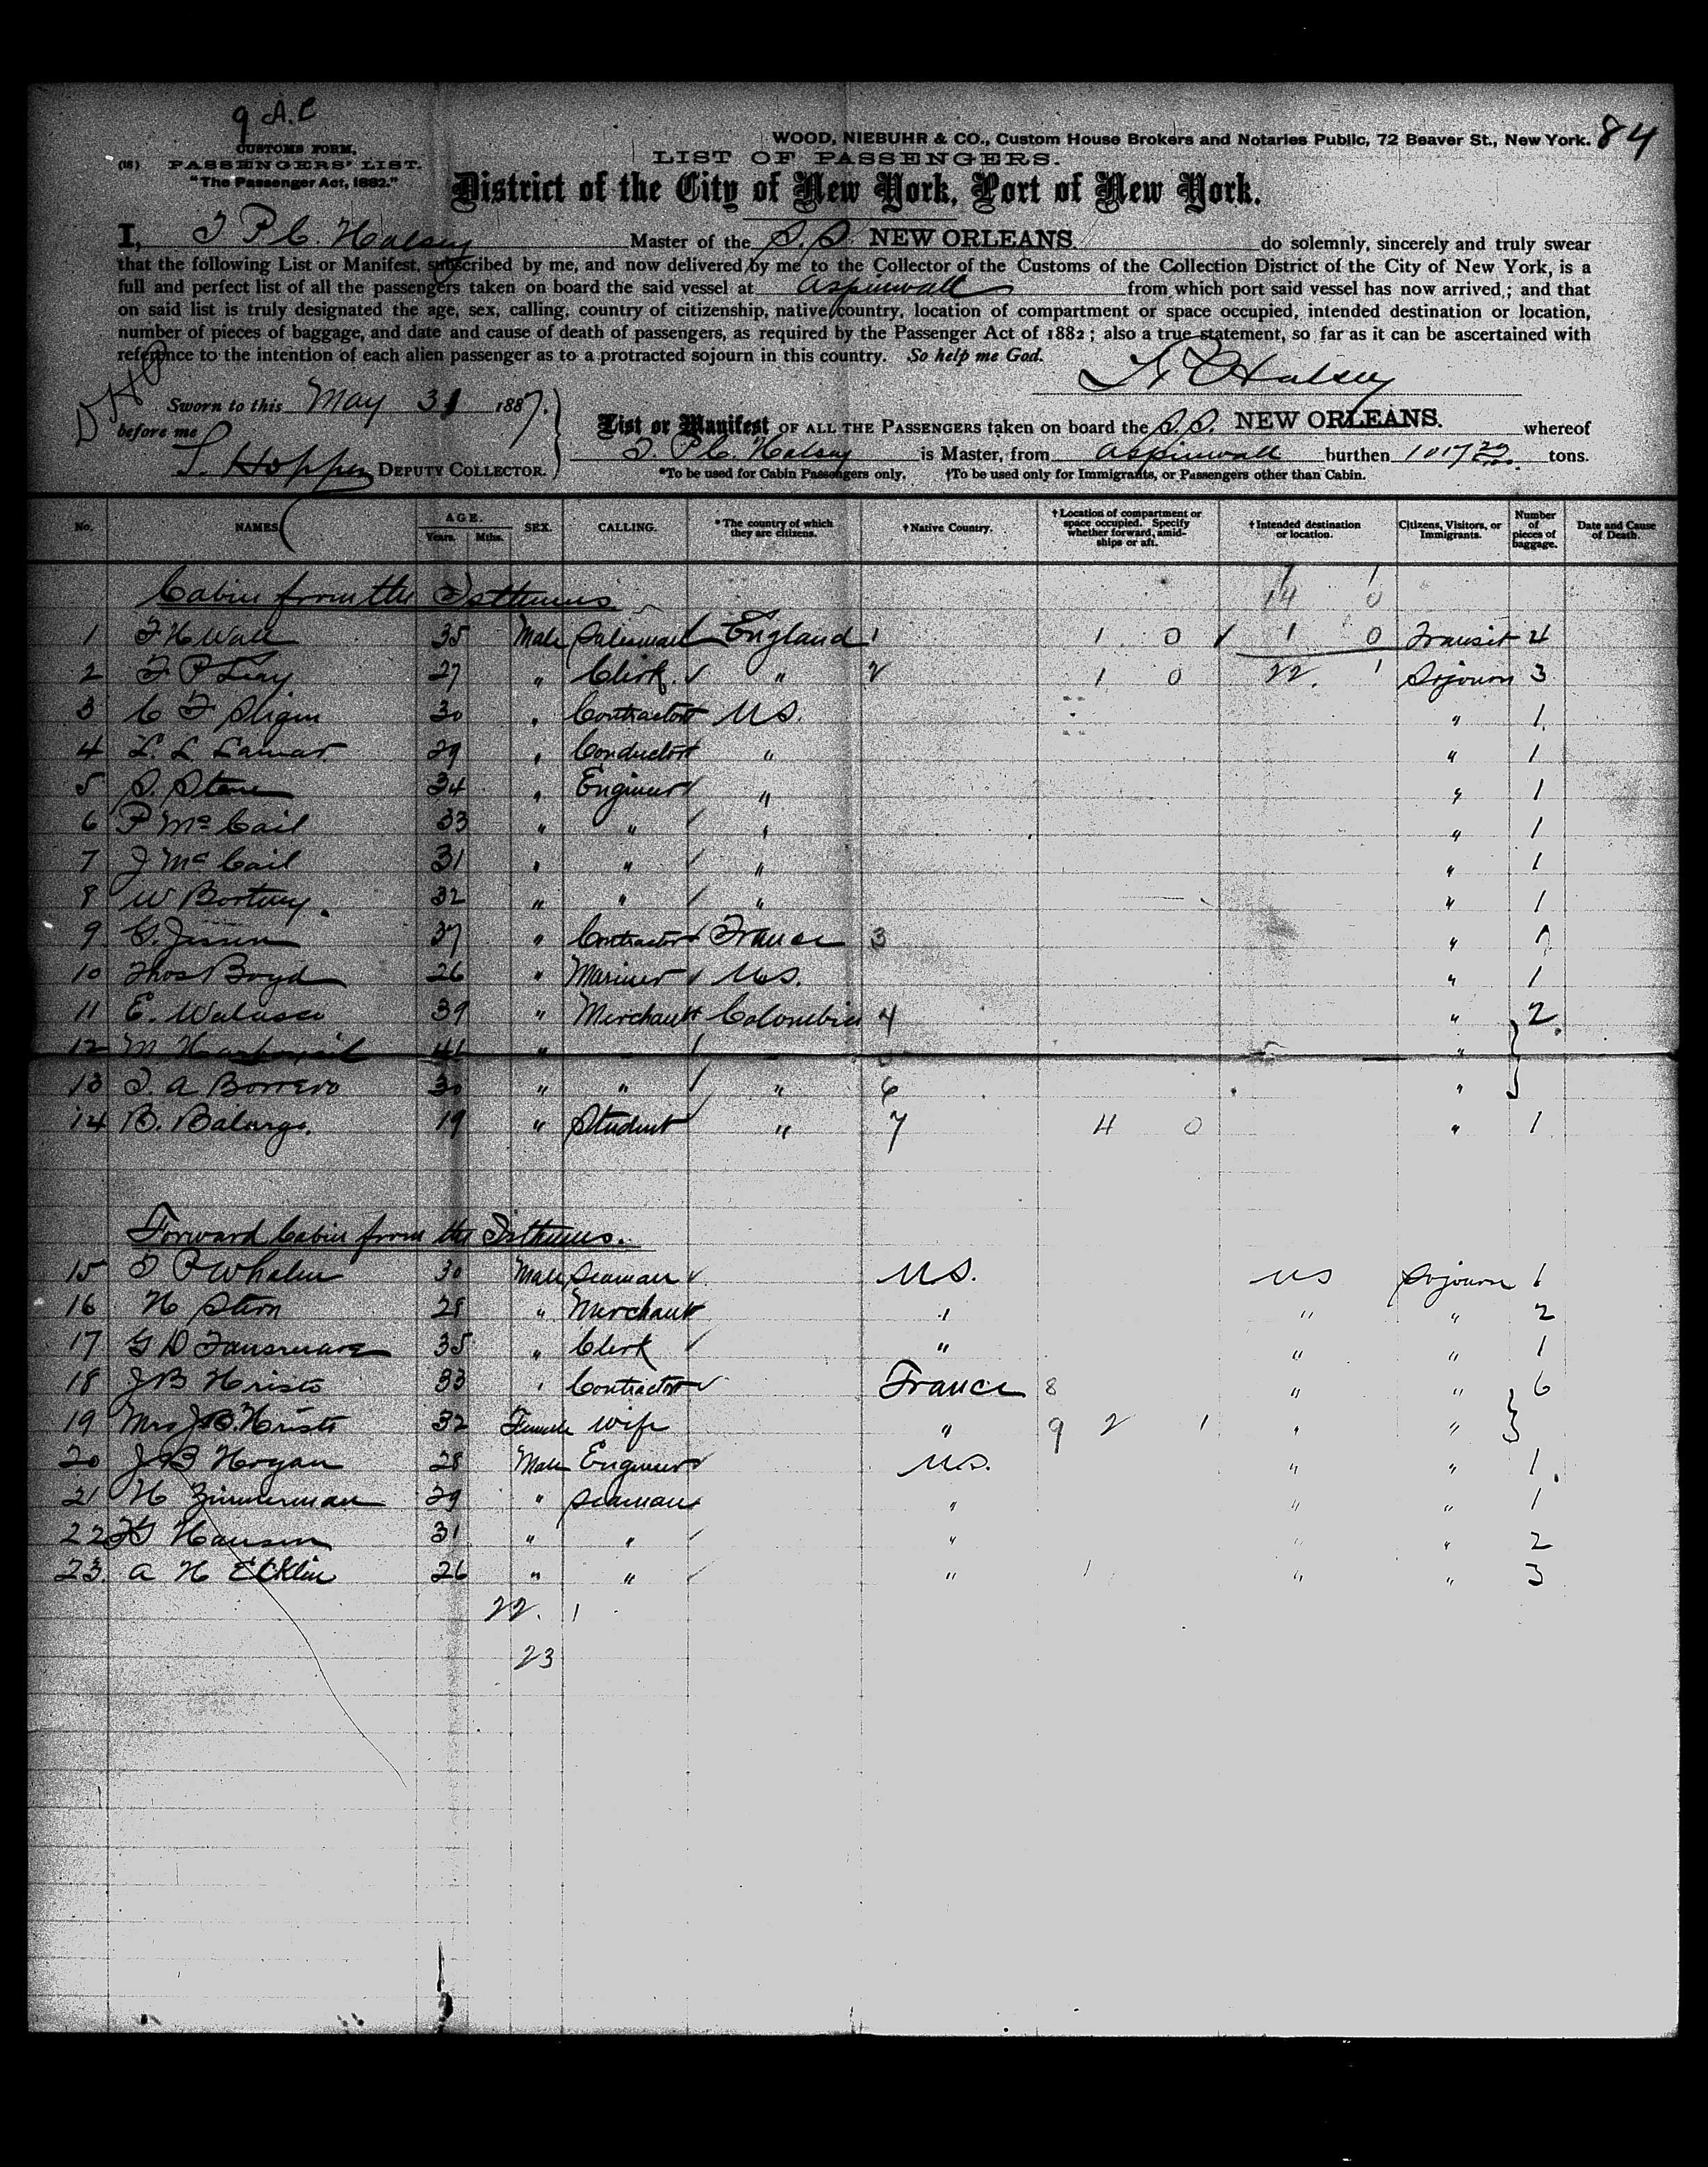 9 A.C
84
WOOD, NIEBUHR & CO., Custom House Brokers and Notaries Public, 72 Beaver St., New York.
CUSTOMS FORM,
(18) PASSENGERS' LIST.
"The Passenger Act, 1882."
LIST OF PASSENGERS.
District of the City of New York, Port of New York.
I, T P C. Halsey Master of the S.S. NEW ORLEANS. do solemnly, sincerely and truly swear
that the following List or Manifest, subscribed by me, and now delivered by me to the Collector of the Customs of the Collection District of the City of New York, is a
full and perfect list of all the passengers taken on board the said vessel at Aspinwall from which port said vessel has now arrived; and that
on said list is truly designated the age, sex, calling, country of citizenship, native country, location of compartment or space occupied, intended destination or location,
number of pieces of baggage, and date and cause of death of passengers, as required by the Passenger Act of 1882; also a true statement, so far as it can be ascertained with
reference to the intention of each alien passenger as to a protracted sojourn in this country. So help me God.
Halsey
Sworn to this May 31 1887.
before me
Hopper DEPUTY COLLECTOR.
List or Manifest OF ALL THE PASSENGERS taken on board the S.S. NEW ORLEANS. whereof
T. P C. Halsey is Master, from Aspinwall burthen 1017 tons.
*To be used for Cabin Passengers only. †To be used only for Immigrants, or Passengers other than Cabin.
No. NAMES AGE. Years. Mths. SEX. CALLING. *The country of which they are citizens. †Native Country. †Location of compartment or space occupied. Specify whether forward, amidships or aft. †Intended destination or location. Citizens, Visitors, or Immigrants. Number of pieces of baggage. Date and Cause of Death.
7 1
Cabin from the Isthmus 14 0
1 F H Wall 35 Male Salesman England 1 1 0 1 0 Transit 4
2 F P 27 " Clerk " 2 1 0 22. 1 Sojourn 3
3 C F 30 " Contractor U.S. " 1
4 L. L Lamar 29 " Conductor " " 1
5 S. Stone 34 " Engineer " " 1
6 P McCail 33 " " " " 1
7 J McCail 31 " " " " 1
8 W 32 " " " " 1
9 G. 37 " Contractor France 3 "
10 Thos Boyd 26 " Mariner U.S. " 1
11 E. Walasco 39 " Merchant Colombia 4 " 2
12 M 41 " "
13 T. A Borrero 30 " " " 6 "
14 B. 19 " Student " 7 4 0 " 1
Forward Cabin from the Isthmus.
15 T P Whalen 30 Male Seaman U.S. US Sojourn 1
16 H Stern 28 " Merchant " " " 2
17 G D 35 " Clerk " " " 1
18 J B Hristo 33 " Contractor France 8 " " 6
19 Mrs J.B. Hristo 32 Female Wife " 9 2 1 " "
20 J B Hogan 28 Male Engineer U.S. " " 1
21 H Zimmerman 29 " Seaman " " " 1
22 Hansen 31 " " " " " 2
23. A H Ecklin 26 " " " 1 " " 3
22. 1
23